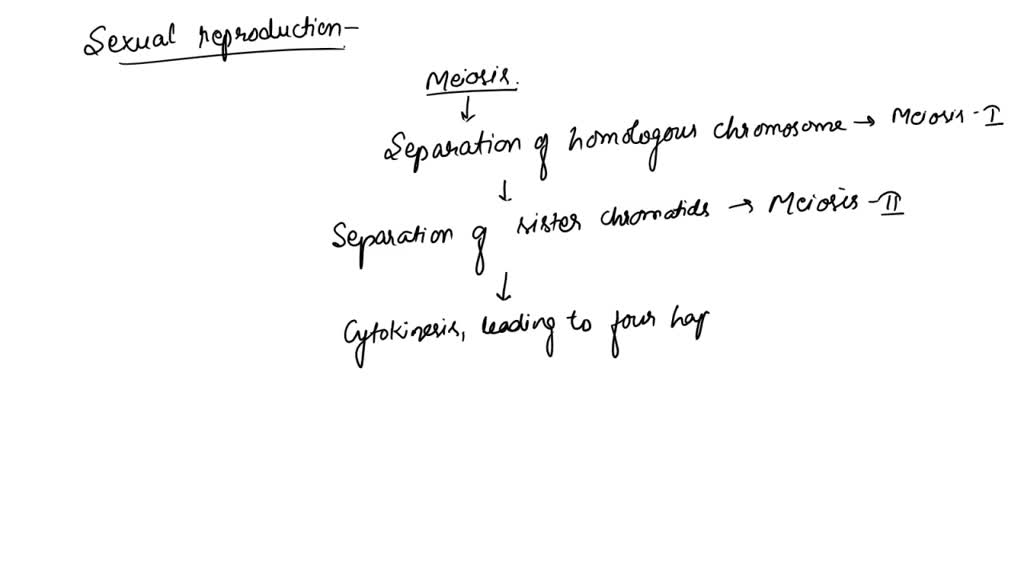 Sexual reproduction-
Meiosis.
↓
Separation of homologous chromosome → Meiosis-I
↓
Separation of sister chromatids → Meiosis-II
↓
Cytokinesis, leading to four hap